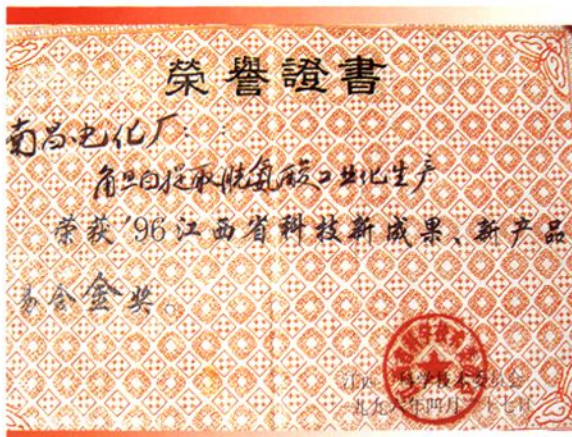 榮譽證書
南昌电化厂：
角蛋白提取胱氨酸工业化生产
荣获'96江西省科技新成果、新产品
易会金奖。
江西 科学技术委员会
一九九六年四月 十七日